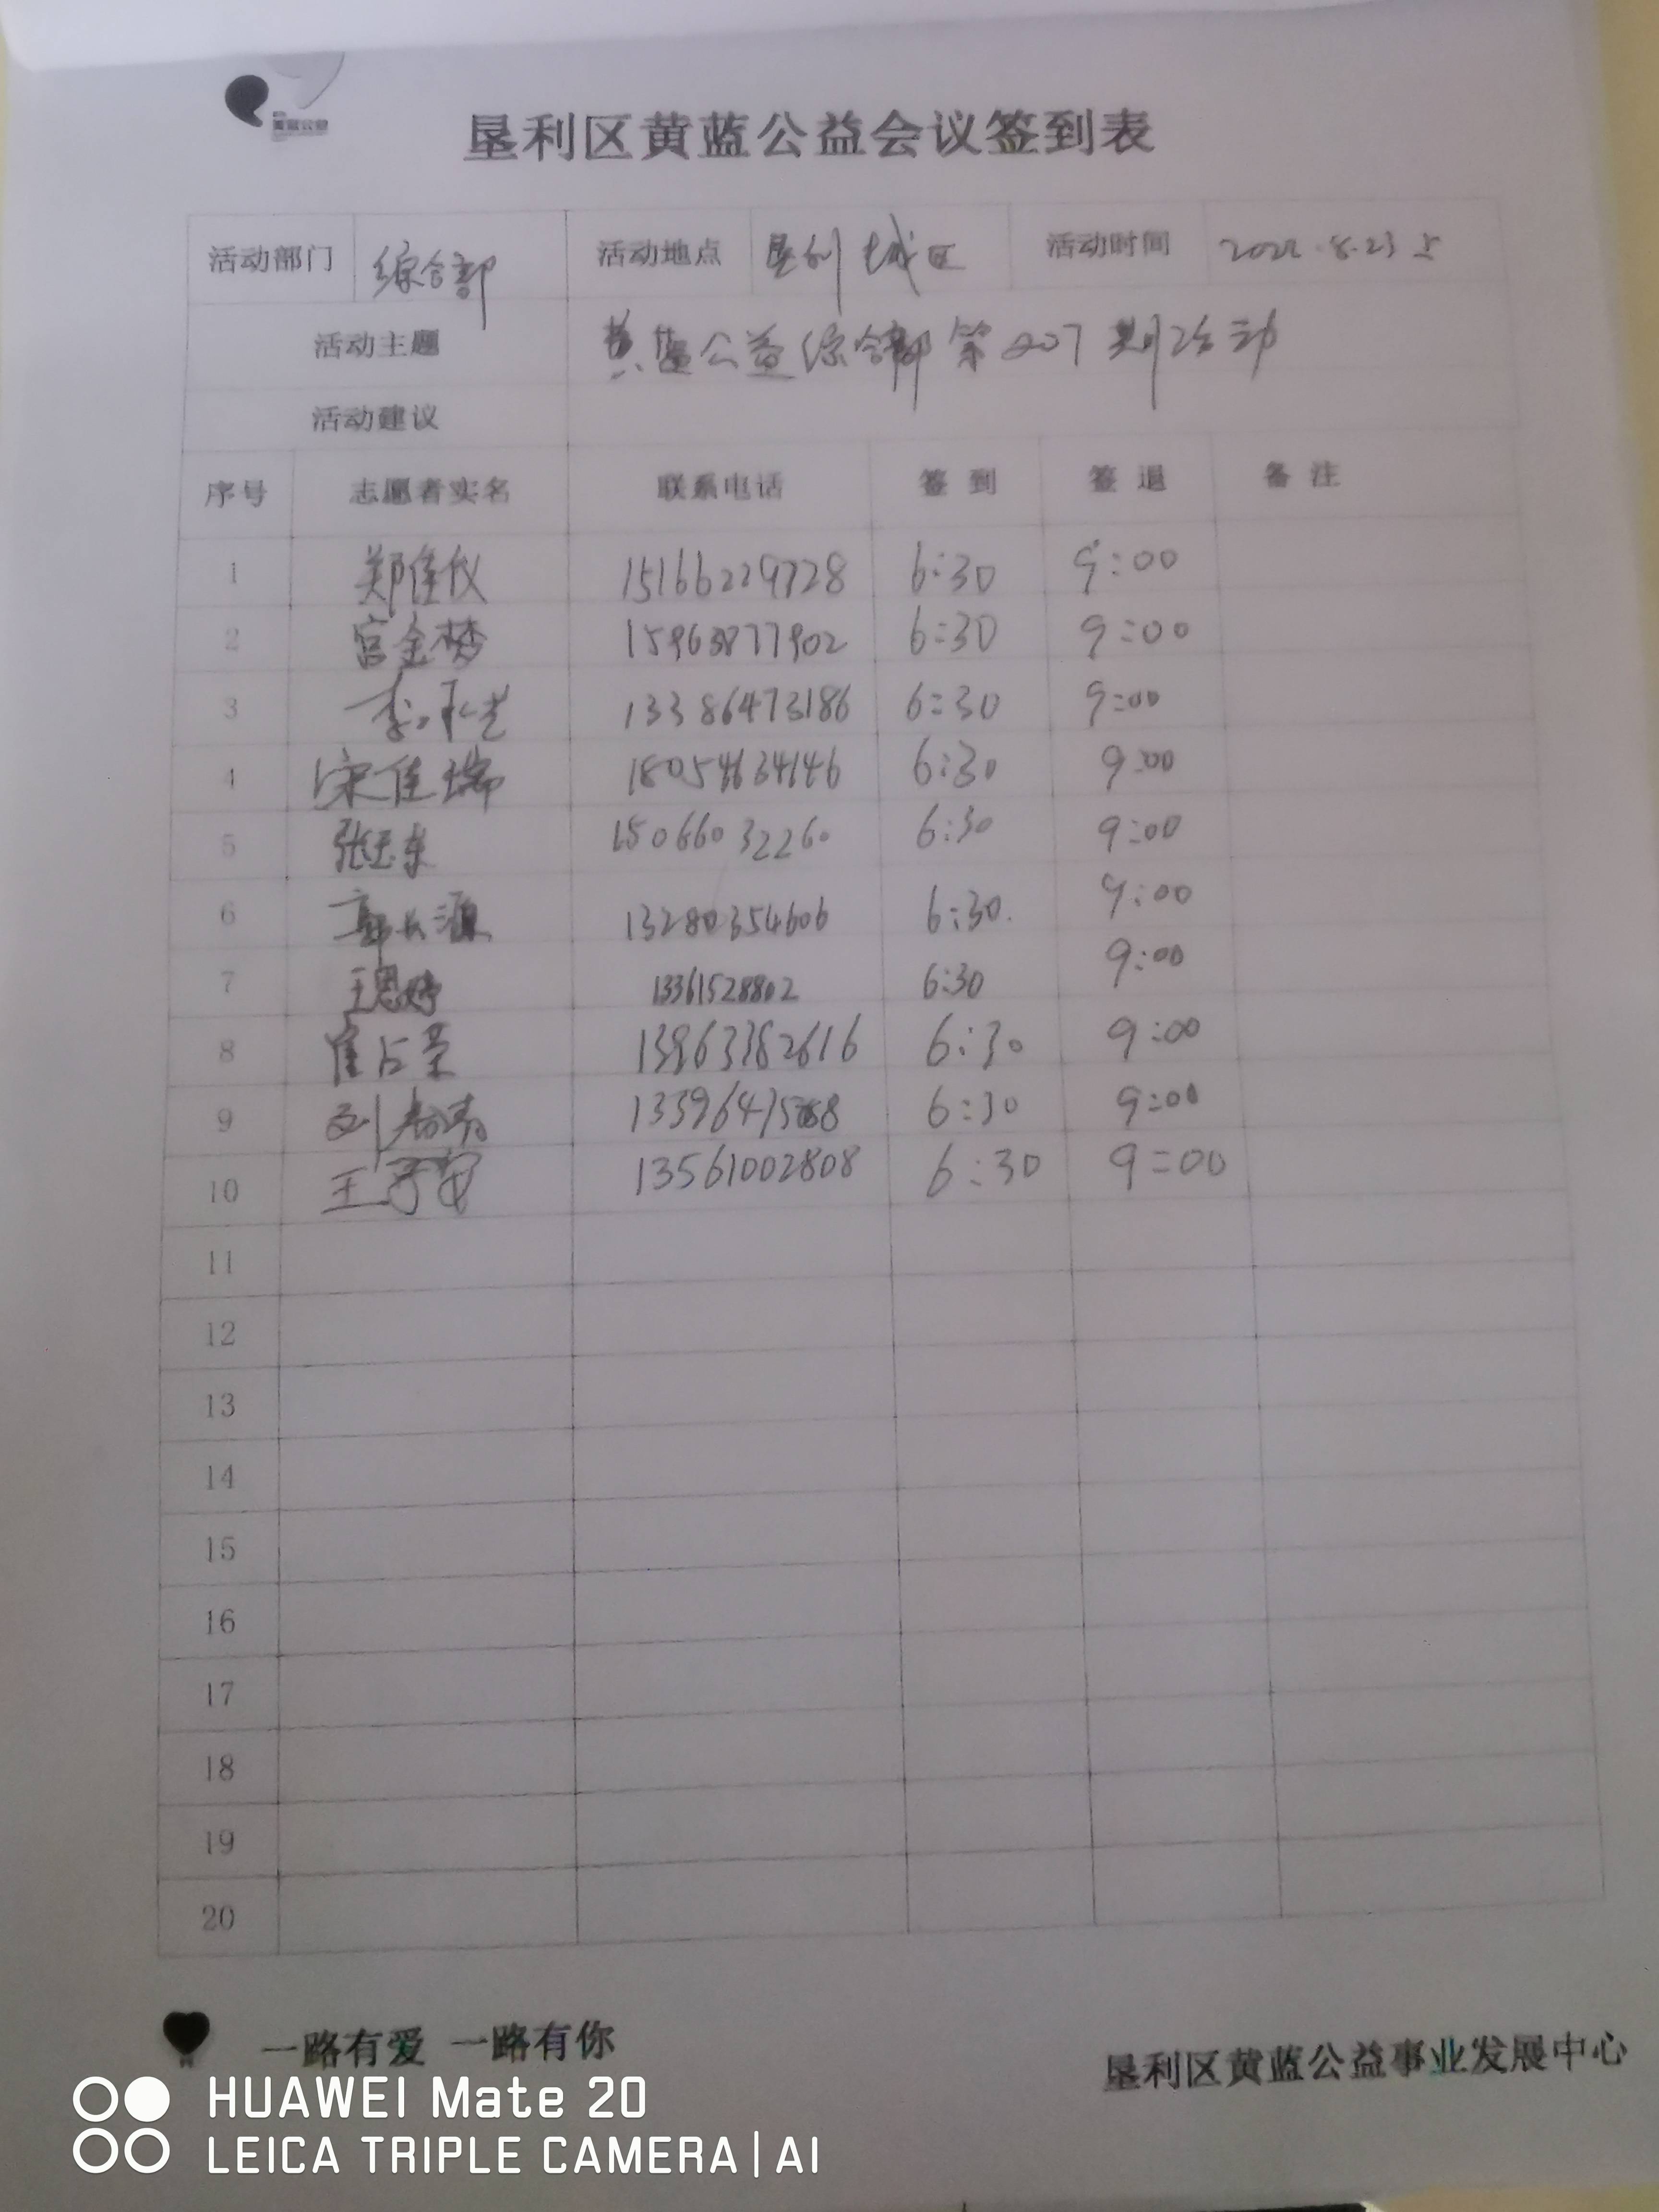 黄蓝公益
垦利区黄蓝公益会议签到表
活动部门 综合部 活动地点 垦利城区 活动时间 2022.8.23
活动主题 黄蓝公益综合部第207期活动
活动建议
序号 志愿者实名 联系电话 签到 签退 备注
1 郑佳仪 15166229728 6:30 9:00
2 宫金梦 15963877902 6:30 9:00
3 13386473186 6:30 9:00
4 宋佳瑞 18054634146 6:30 9:00
5 张玉东 15066032260 6:30 9:00
6 郭长源 13280354606 6:30 9:00
7 王思婷 13361528802 6:30 9:00
8 崔占荣 13963382616 6:30 9:00
9 刘春青 6:30 9:00
10 王 13561002808 6:30 9:00
11
12
13
14
15
16
17
18
19
20
一路有爱 一路有你
垦利区黄蓝公益事业发展中心
HUAWEI Mate 20
LEICA TRIPLE CAMERA | AI